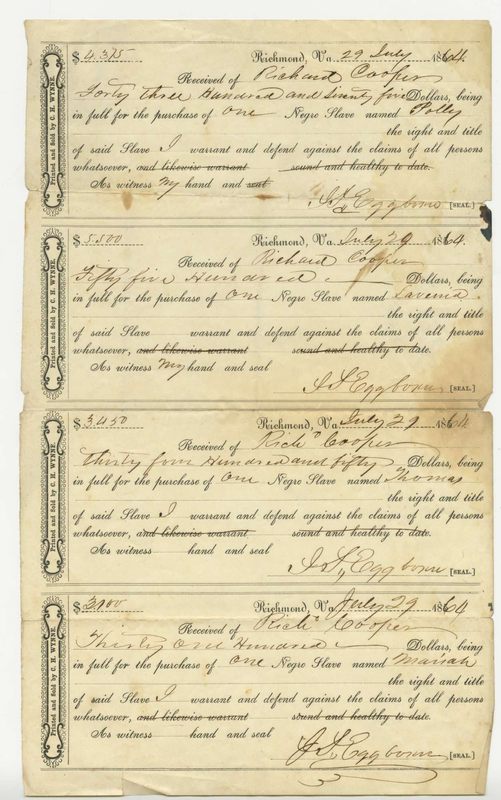 Printed and Sold by C. H. WYNNE.
$ 4,375 Richmond, Va. 29 July 1864.
Received of Richard Cooper
Forty three Hundred and Seventy five Dollars, being
in full for the purchase of One Negro Slave named Polly
the right and title
of said Slave I warrant and defend against the claims of all persons
whatsoever, and likewise warrant sound and healthy to date.
As witness my hand and seal
Eggborn [SEAL.]
Printed and Sold by C. H. WYNNE.
$ 5,500 Richmond, Va. July 29 1864.
Received of Richard Cooper
Fifty five Hundred Dollars, being
in full for the purchase of One Negro Slave named Lavenia
the right and title
of said Slave warrant and defend against the claims of all persons
whatsoever, and likewise warrant sound and healthy to date.
As witness my hand and seal
Eggborn [SEAL.]
Printed and Sold by C. H. WYNNE.
$ 3,450 Richmond, Va. July 29 1864
Received of Richd Cooper
Thirty four Hundred and fifty Dollars, being
in full for the purchase of One Negro Slave named Thomas
the right and title
of said Slave I warrant and defend against the claims of all persons
whatsoever, and likewise warrant sound and healthy to date.
As witness hand and seal
Eggborn [SEAL.]
Printed and Sold by C. H. WYNNE.
$ 3100 Richmond, Va. July 29 1864
Received of Richd Cooper
Thirty One Hundred Dollars, being
in full for the purchase of One Negro Slave named Mariah
the right and title
of said Slave I warrant and defend against the claims of all persons
whatsoever, and likewise warrant sound and healthy to date.
As witness hand and seal
Eggborn [SEAL.]